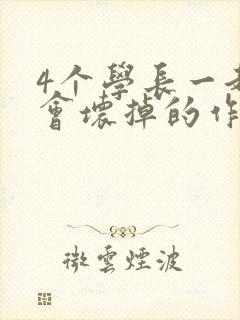 4个學長一
會壞掉的作
微雲煙波